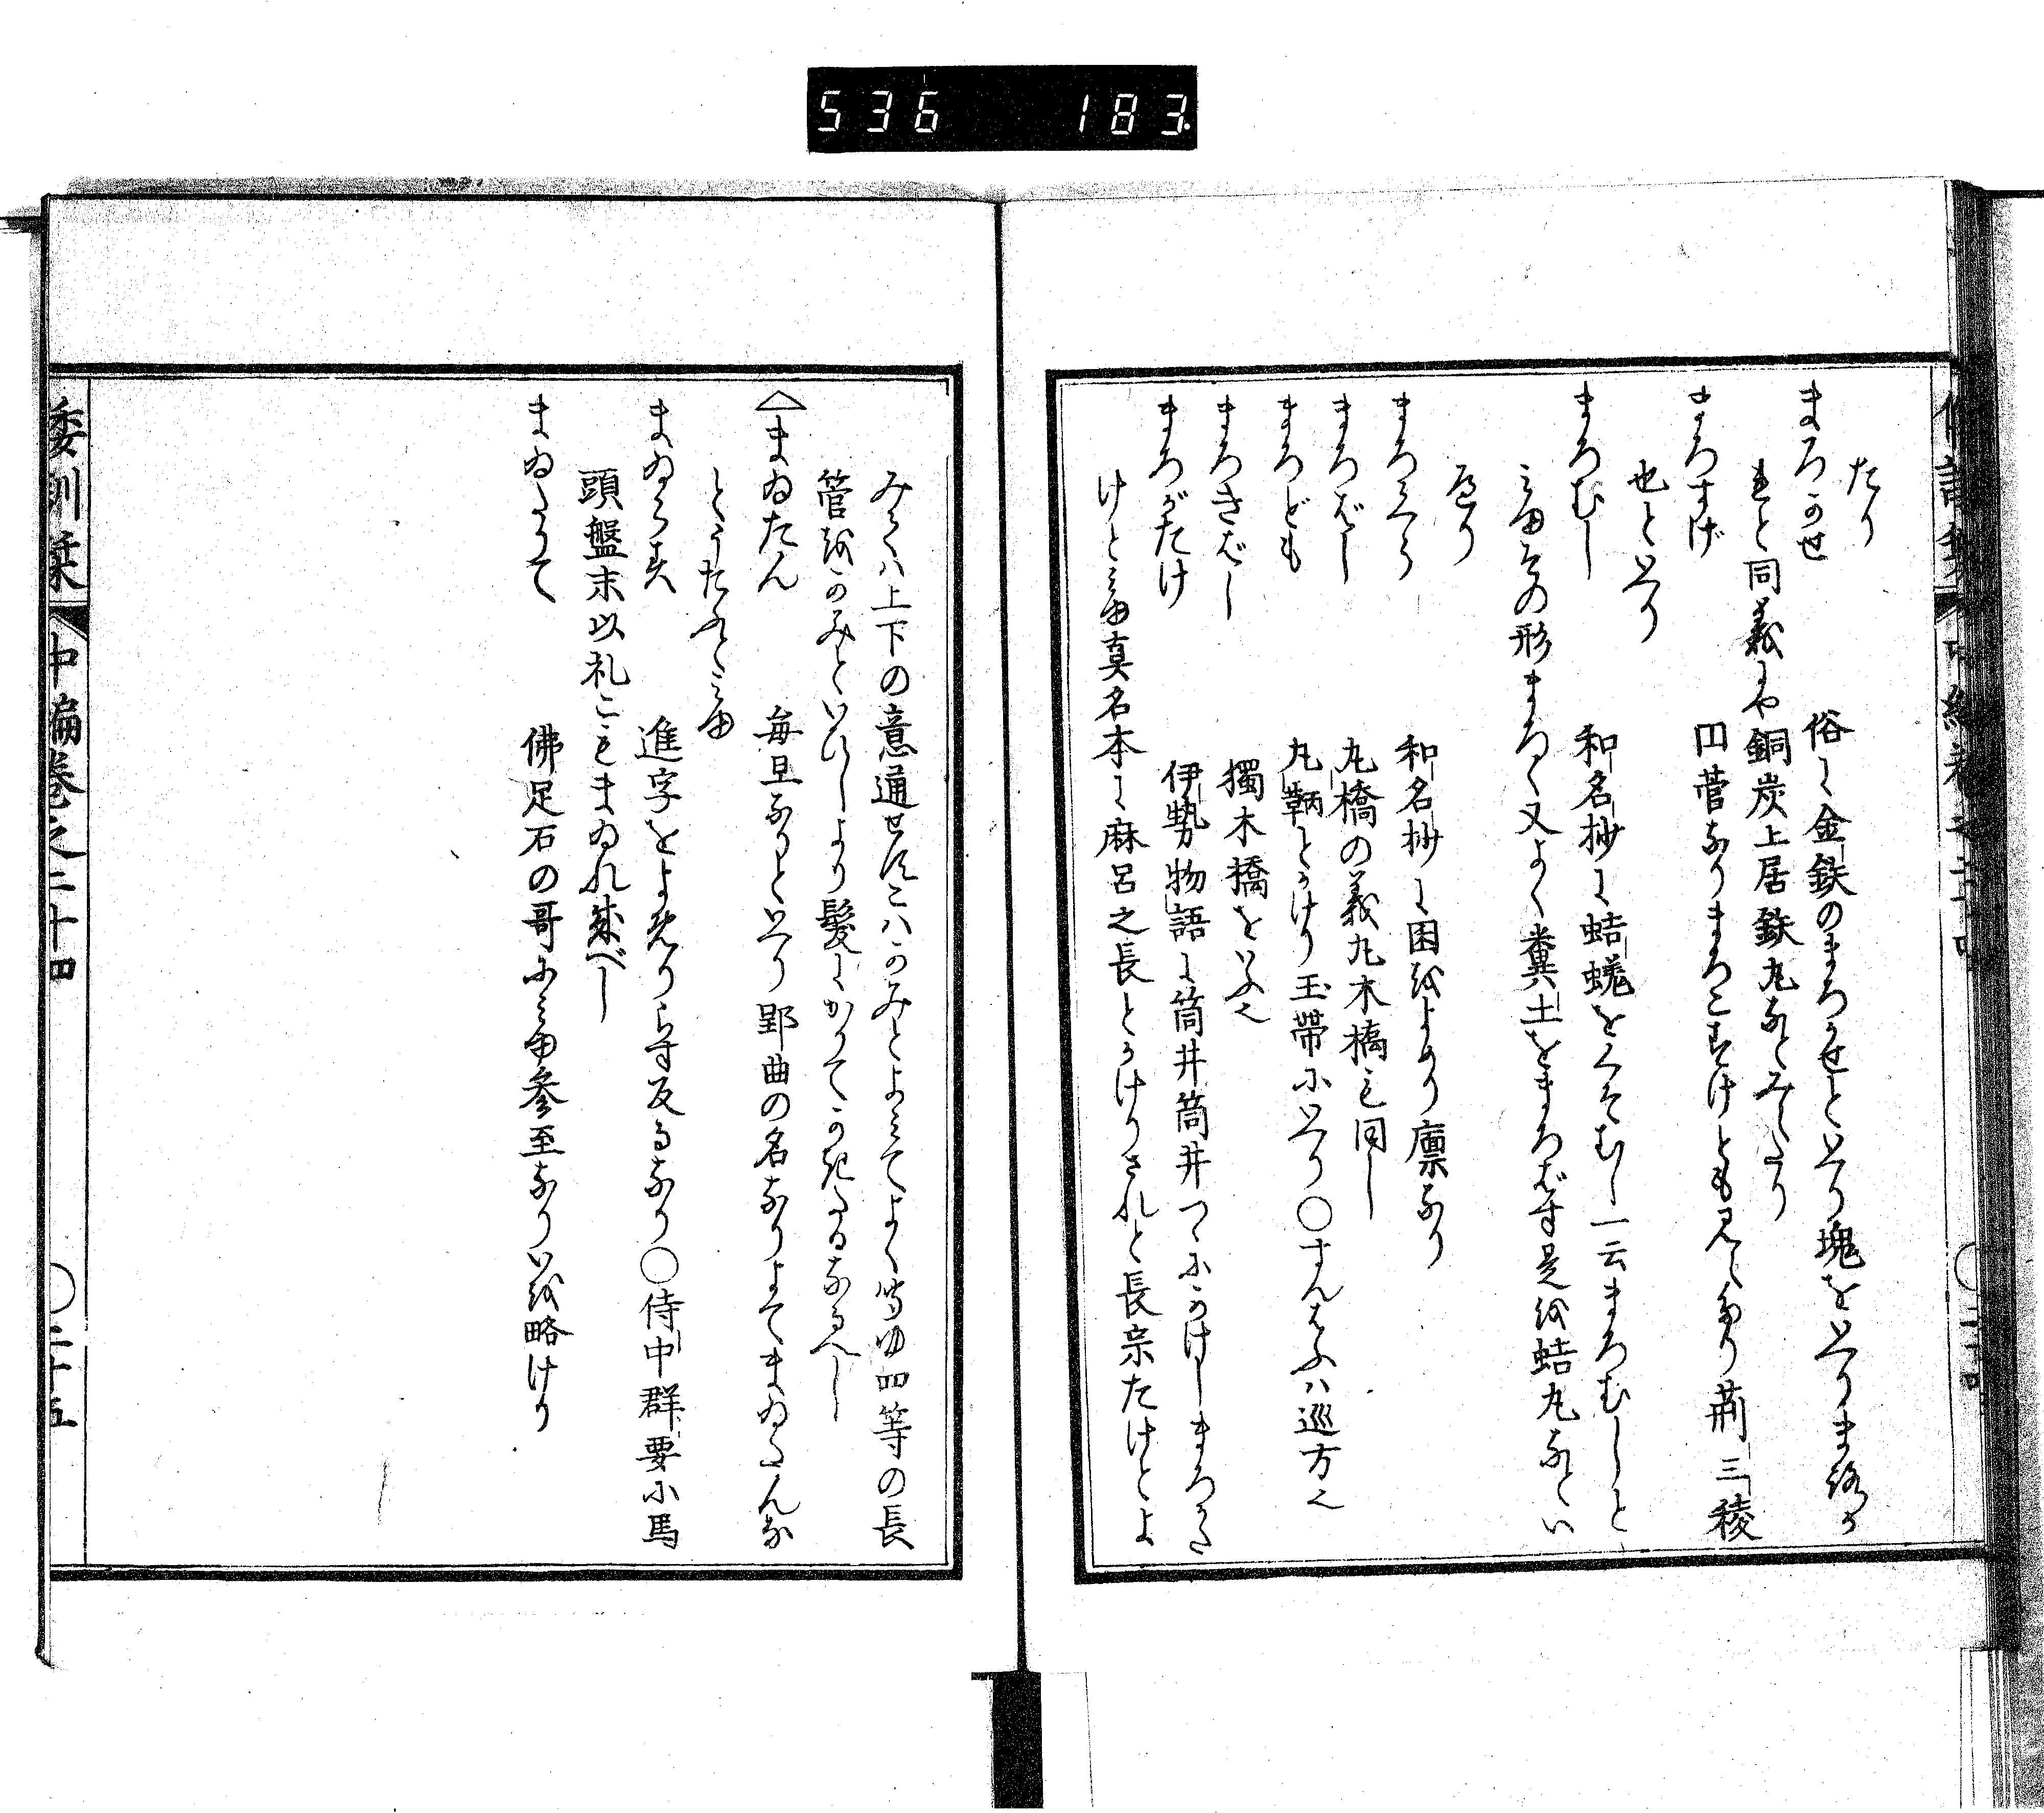 536 183
たり
まろかせ 俗に金鉄のまろかせといへり塊をいへりまろか
れと同義にや銅炭上居鉄丸なとみえたり
まろすげ 円菅なりまろこすけとも見えたり荊三稜
也といへり
まろむし 和名抄に蛣蜣をくそむし一云まろむしと
みゆその形まろく又よく糞土をまろばす是を蛣丸なとい
へり
まろくら 和名抄に囷をよめり廩なり
まろばし 丸橋の義丸木橋も同し
まろども 丸鞆とかけり玉帯にいへり○すんはふハ巡方也
まろきばし 獨木橋をいふ也
まろがたけ 伊勢物語に筒井筒井つゝにかけしまろかた
けとみゆ真名本に麻呂之長とかけりされと長宗たけとよ
みくハ上下の意通せすこハかみとよみてよく聞ゆ四等の長
管をかみといひしより髪にかりてかきたるなるへし
△まゐたん 毎旦なりといへり郢曲の名なりよてまゐたんな
とうたふとみゆ
まゐらす 進字をよめりらす反るなり○侍中群要に馬
頭盤末以礼こもまゐれ成べし
まゐたりて 佛足石の哥にみゆ参至なりいを略けり
倭訓栞 中編巻之二十四 ○二十五